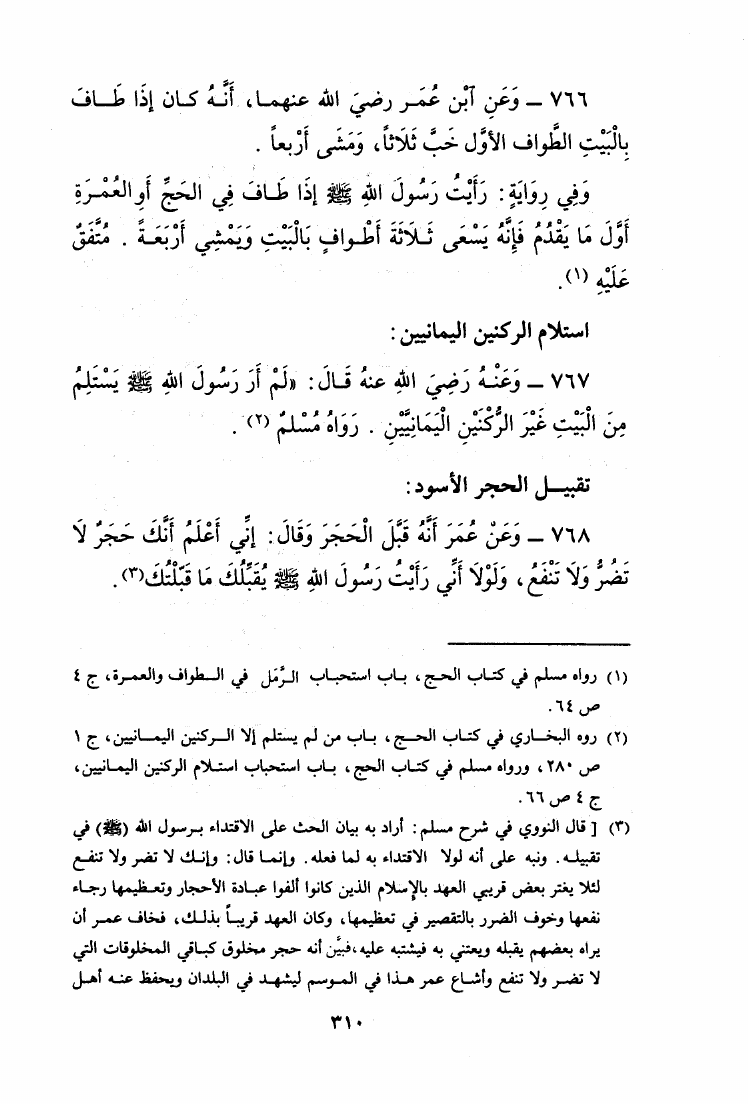 ٧٦٦ ــ وَعَنِ ٱبْن عُمَـر رضيَ الله عنهمـا، أَنَّـهُ كـان إذَا طَــافَ
بِالْبَيْتِ الطَّواف الأوَّل خَبَّ ثَلَاثاً، وَمَشَى أَرْبعاً .
وَفِي رِوَايَةٍ: رَأَيْتُ رَسُولَ اللهِ ﷺ إذَا طَـافَ فِي الحَجِّ أَوِ العُمْـرَةِ
أَوَّلَ مَا يَقْدُمُ فَإِنَّهُ يَسْعَى ثَـلَاثَةَ أَطْـوافٍ بَالْبَيْتِ وَيَمْشِي أَرْبَعَـةً . مُتَّفَقٌ
عَلَيْهِ (١).
استلام الركنين اليمانيين:
٧٦٧ ــ وَعَنْـهُ رَضِيَ اللهِ عنهُ قَـالَ: «لَمْ أَرَ رَسُولَ اللهِ ﷺ يَسْتَلِمُ
مِنَ الْبَيْتِ غَيْرَ الرُّكْنَيْنِ الْيَمَانِيَّيْنِ . رَوَاهُ مُسْلمٌ (٢) .
تقبيــل الحجر الأسود:
٧٦٨ ــ وَعَنْ عُمَرَ أَنَّهُ قَبَّلَ الْحَجَرَ وَقَالَ: إنِّي أَعْلَمُ أَنَّكَ حَجَرٌ لَا
تَضُرُّ وَلَا تَنْفَعُ، وَلَوْلَا أَنِّي رَأَيْتُ رَسُولَ اللهِ ﷺ يُقَبِّلُكَ مَا قَبَّلْتُكَ(٣).
(١) رواه مسلم في كتـاب الحـج، بـاب استحبـاب الـرَّمَل في الـطواف والعمـرة، ج ٤
ص ٦٤.
(٢) روه البخـاري في كتاب الحــج، بـاب من لم يستلم إلا الـركنين اليمـانيين، ج ١
ص ٢٨٠، ورواه مسلم في كتـاب الحج، بـاب استحباب استـلام الركنين اليمـانيين،
ج ٤ ص ٦٦.
(٣) [ قال النووي في شرح مسلم: أراد به بيان الحث على الاقتداء بـرسول الله (ﷺ) في
تقبيلـه. ونبه على أنه لولا الاقتداء به لما فعله. وإنمـا قال: وإنـك لا تضر ولا تنفـع
لئلا يغتر بعض قريبي العهد بالإسلام الذين كانوا ألفوا عبـادة الأحجار وتعـظيمها رجـاء
نفعها وخوف الضرر بالتقصير في تعظيمها، وكان العهد قريبـاً بذلـك، فخاف عمـر أن
يراه بعضهم يقبله ويعتني به فيشتبه عليه،فبيَّن أنه حجر مخلوق كبـاقي المخلوقات التي
لا تضـر ولا تنفع وأشـاع عمر هـذا في المـوسم ليشهـد في البلدان ويحفظ عنـه أهـل
٣١٠